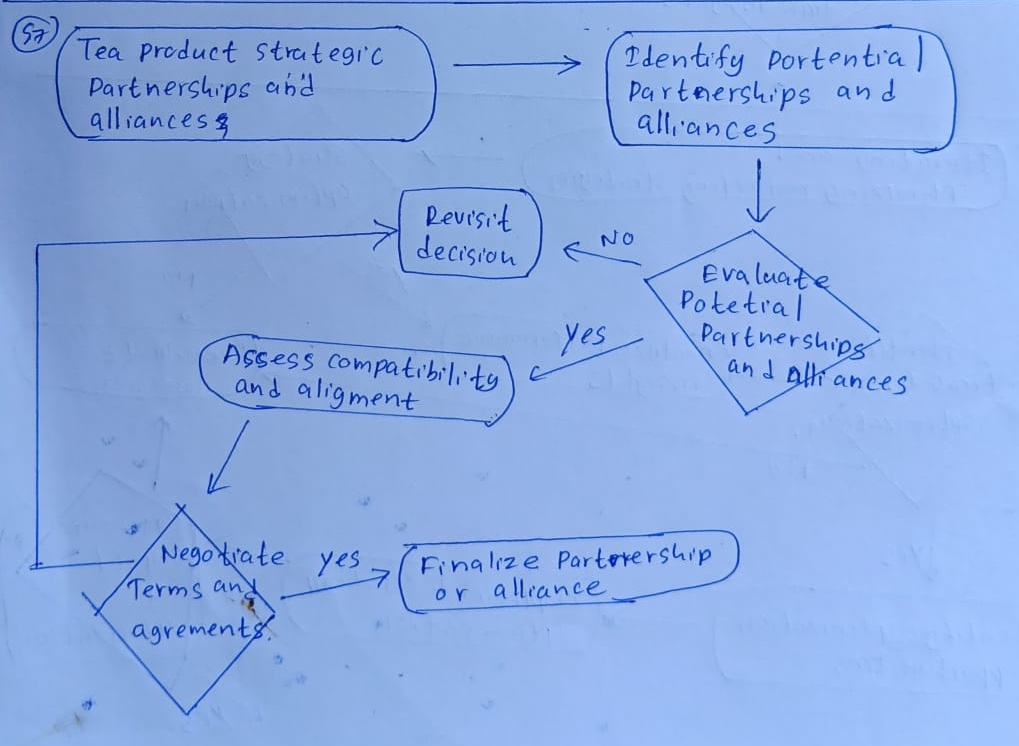 57
Tea product strategic
Partnerships and
alliances
Identify portential
Partnerships and
alliances
Revisit
decision
NO
Evaluate
Potetial
Partnerships
and alliances
yes
Assess compatibility
and aligment
Negotiate
Terms and
agrements
yes
Finalize Partnership
or alliance